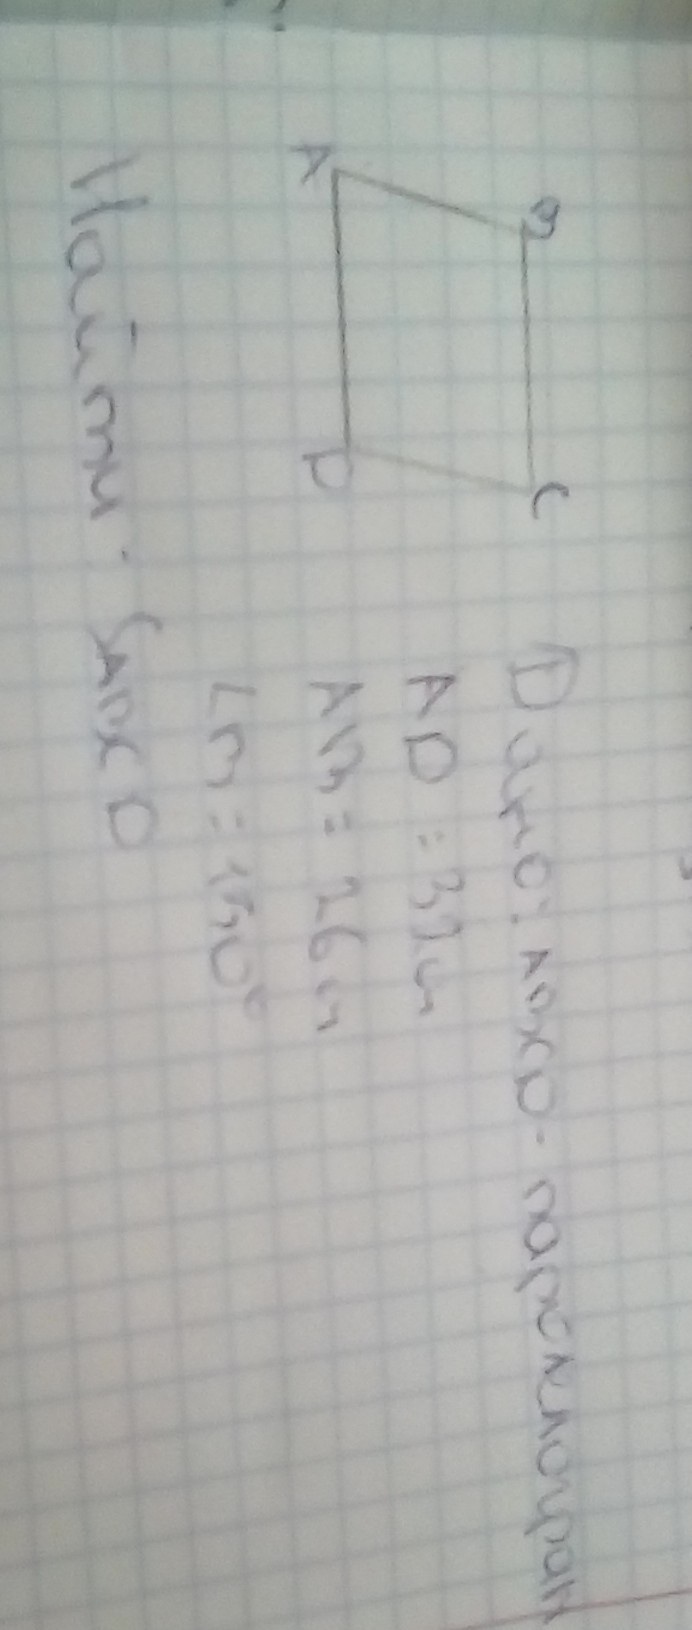 B C
A D
Дано: ABCD - параллограм
AD = 32 см
AB = 26 см
∠B = 150°
Найти: SABCD